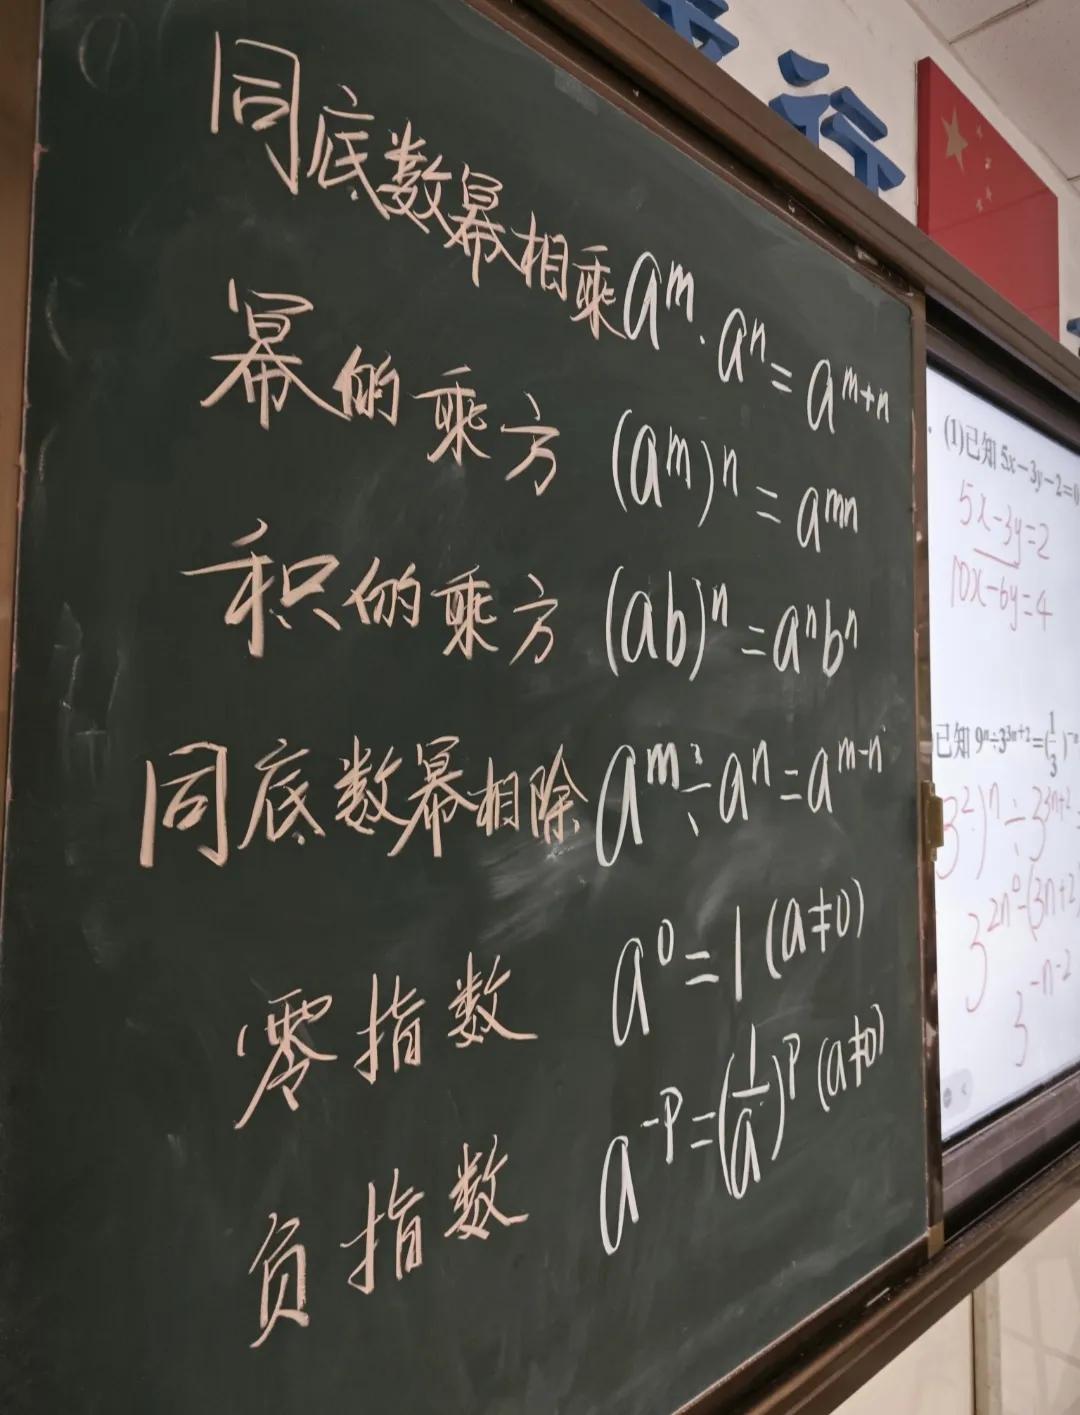 行
同底数幂相乘 aᵐ·aⁿ=aᵐ⁺ⁿ
幂的乘方 (aᵐ)ⁿ=aᵐⁿ
积的乘方 (ab)ⁿ=aⁿbⁿ
同底数幂相除 aᵐ÷aⁿ=aᵐ⁻ⁿ
零指数 a⁰=1 (a≠0)
负指数 a⁻ᵖ=(1/a)ᵖ (a≠0)
(1)已知 5x-3y-2=0
5x-3y=2
10x-6y=4
已知 9ⁿ÷3³ⁿ⁺²=(1/3)⁻ⁿ
3²)ⁿ÷3³ⁿ⁺²
3²ⁿ⁻⁽³ⁿ⁺²
3⁻ⁿ⁻²